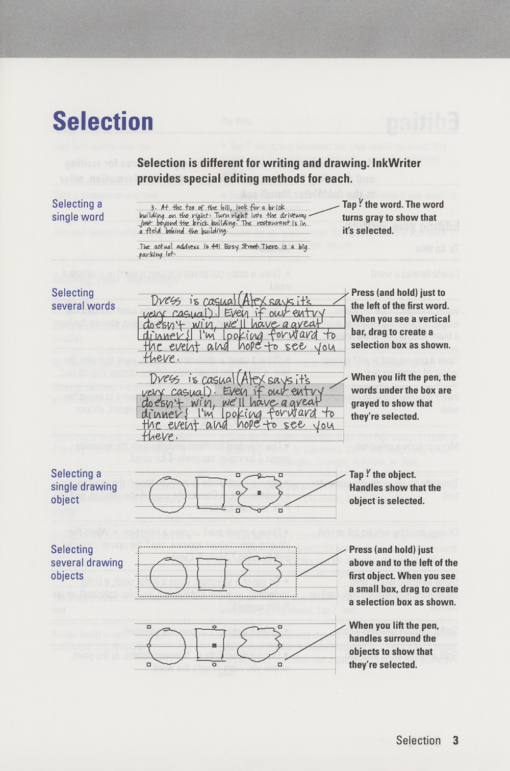 Selection
Selection is different for writing and drawing. InkWriter
provides special editing methods for each.
Selecting a
single word
3. At the top of the hill, look for a brick
building on the right. Turn right into the driveway
just beyond the brick building. The restaurant is in
a field behind the building.
The actual address is 441 Busy Street. There is a big
parking lot.
Tap the word. The word
turns gray to show that
it's selected.
Selecting
several words
Dress is casual (Alex says it's
very casual). Even if our entry
doesn't win, we'll have a great
dinner! I'm looking forward to
the event and hope to see you
there.
Press (and hold) just to
the left of the first word.
When you see a vertical
bar, drag to create a
selection box as shown.
Dress is casual (Alex says it's
very casual). Even if our entry
doesn't win, we'll have a great
dinner! I'm looking forward to
the event and hope to see you
there.
When you lift the pen, the
words under the box are
grayed to show that
they're selected.
Selecting a
single drawing
object
Tap the object.
Handles show that the
object is selected.
Selecting
several drawing
objects
Press (and hold) just
above and to the left of the
first object. When you see
a small box, drag to create
a selection box as shown.
When you lift the pen,
handles surround the
objects to show that
they're selected.
Selection 3